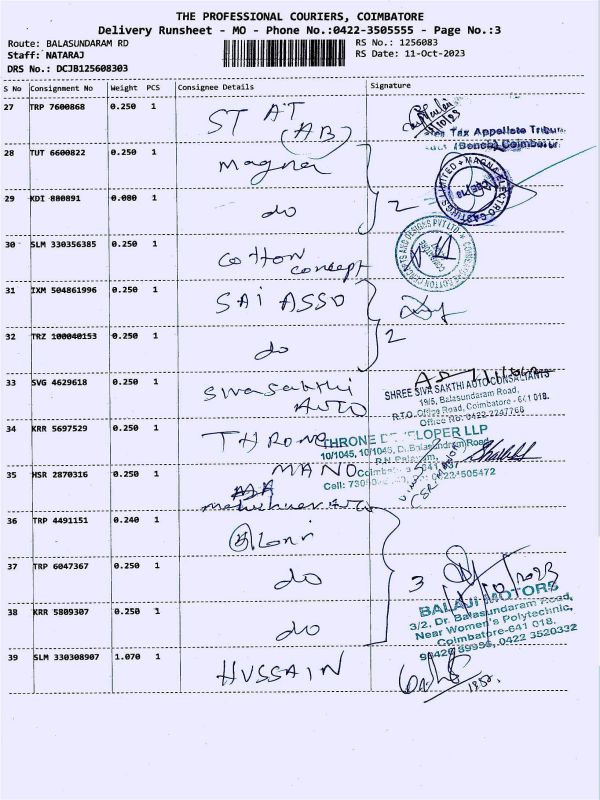 THE PROFESSIONAL COURIERS, COIMBATORE
Delivery Runsheet - MO - Phone No.:0422-3505555 - Page No.:3
Route: BALASUNDARAM RD RS No.: 1256083
Staff: NATARAJ RS Date: 11-Oct-2023
DRS No.: DCJB125608303
S No Consignment No Weight PCS Consignee Details Signature
27 TRP 7600868 0.250 1 ST AT
(AB)
Tax Appellate Tribun
(Bench) Coimbatore
28 TUT 6600822 0.250 1 Magna
MAGNA ELECTRO CASTINGS LIMITED
29 KDI 880891 0.080 1 do 2
30 SLM 330356385 0.250 1 Cotton
concept
COTTON CONCEPTS AND DESIGNS PVT LTD
COIMBATORE
31 IXM 504861996 0.250 1 SAI ASSO
32 TRZ 100040153 0.250 1 do 2
33 SVG 4629618 0.250 1 Sivasakthi
AUTO
SHREE SIVA SAKTHI AUTO CONSULTANTS
19/5, Balasundaram Road,
R.T.O. Office Road, Coimbatore - 641 018.
Office No. 0422-2247768
34 KRR 5697529 0.250 1 THRONE
THRONE DEVELOPER LLP
10/1045, 10/1046, Dr. Balasundram Road,
35 HSR 2870316 0.250 1 MANO
36 TRP 4491151 0.240 1
37 TRP 6047367 0.250 1 do 3
38 KRR 5809307 0.250 1 do
BALAJI MOTORS
3/2, Dr. Balasundaram Road,
Near Women's Polytechnic,
Coimbatore-641 018.
90420 89995, 0422 3520332
39 SLM 330308907 1.070 1 HUSSAIN